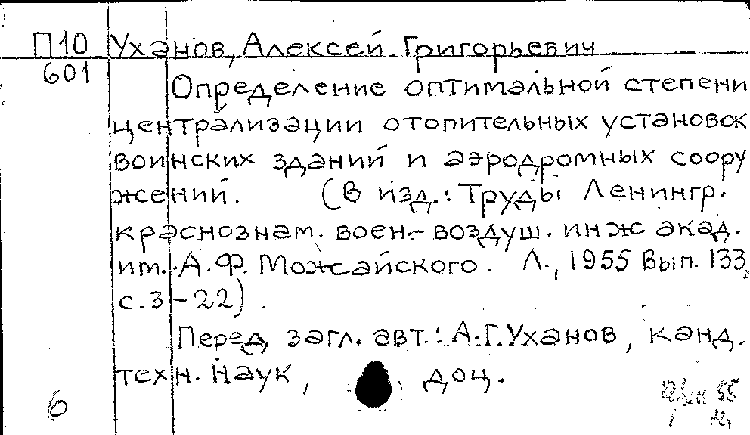 П10 Уханов, Алексей Григорьевич
601
Определение оптимальной степени
централизации отопительных установок
воинских зданий и аэродромных соору
жений. (В изд.: Труды Ленингр.
краснознам. воен.-воздуш. инж акад.
им. А.Ф. Можайского. Л., 1955 Вып. 133,
с. 3-22).
Перед загл. авт.: А.Г. Уханов, канд.
техн. наук, доц.
6
55